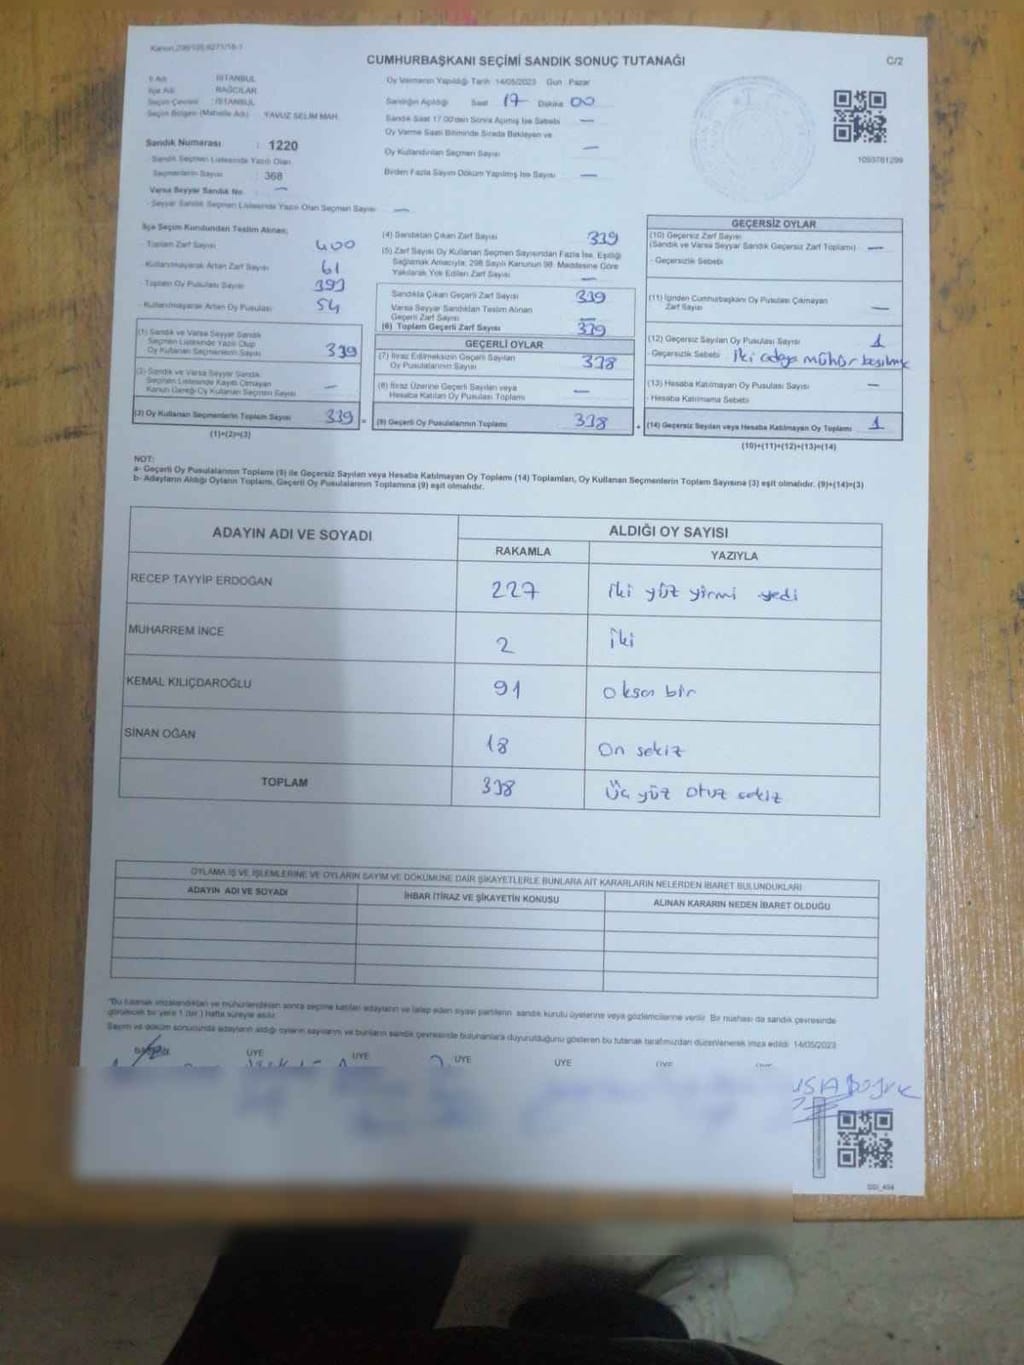 CUMHURBAŞKANI SEÇİMİ SANDIK SONUÇ TUTANAĞI
C/2
İl Adı : İSTANBUL
İlçe Adı : BAĞCILAR
Seçim Çevresi : İSTANBUL
Seçim Bölgesi (Mahalle Adı) : YAVUZ SELİM MAH.
Sandık Numarası : 1220
Sandık Seçmen Listesinde Yazılı Olan
Seçmenlerin Sayısı : 368
Varsa Seyyar Sandık No —
- Seyyar Sandık Seçmen Listesinde Yazılı Olan Seçmen Sayısı —
Oy Vermenin Yapıldığı Tarih 14/05/2023 Gün Pazar
Sandığın Açıldığı Saat 17 Dakika 00
Sandık Saat 17.00'den Sonra Açılmış İse Sebebi —
Oy Verme Saati Bitiminde Sırada Bekleyen ve
Oy Kullandırılan Seçmen Sayısı —
Birden Fazla Sayım Döküm Yapılmış İse Sayısı —
1093781299
İlçe Seçim Kurulundan Teslim Alınan;
- Toplam Zarf Sayısı 400
- Kullanılmayarak Artan Zarf Sayısı 61
- Toplam Oy Pusulası Sayısı 393
- Kullanılmayarak Artan Oy Pusulası 54
(1) Sandık ve Varsa Seyyar Sandık
Seçmen Listesinde Yazılı Olup
Oy Kullanan Seçmenlerin Sayısı 339
(2) Sandık ve Varsa Seyyar Sandık
Seçmen Listesinde Kayıtlı Olmayan
Kanun Gereği Oy Kullanan Seçmen Sayısı —
(3) Oy Kullanan Seçmenlerin Toplam Sayısı 339 =
(1)+(2)=(3)
(4) Sandıktan Çıkan Zarf Sayısı 339
(5) Zarf Sayısı Oy Kullanan Seçmen Sayısından Fazla İse, Eşitliği
Sağlamak Amacıyla; 298 Sayılı Kanunun 98. Maddesine Göre
Yakılarak Yok Edilen Zarf Sayısı —
Sandıkta Çıkan Geçerli Zarf Sayısı 339
Varsa Seyyar Sandıktan Teslim Alınan
Geçerli Zarf Sayısı —
(6) Toplam Geçerli Zarf Sayısı 339
GEÇERLİ OYLAR
(7) İtiraz Edilmeksizin Geçerli Sayılan
Oy Pusulalarının Sayısı 338
(8) İtiraz Üzerine Geçerli Sayılan veya
Hesaba Katılan Oy Pusulası Toplamı —
(9) Geçerli Oy Pusulalarının Toplamı 338 +
GEÇERSİZ OYLAR
(10) Geçersiz Zarf Sayısı
(Sandık ve Varsa Seyyar Sandık Geçersiz Zarf Toplamı) —
- Geçersizlik Sebebi
(11) İçinden Cumhurbaşkanı Oy Pusulası Çıkmayan
Zarf Sayısı —
(12) Geçersiz Sayılan Oy Pusulası Sayısı 1
- Geçersizlik Sebebi İki adaya mühür
(13) Hesaba Katılmayan Oy Pusulası Sayısı —
- Hesaba Katılmama Sebebi
(14) Geçersiz Sayılan veya Hesaba Katılmayan Oy Toplamı 1
(10)+(11)+(12)+(13)=(14)
NOT:
a- Geçerli Oy Pusulalarının Toplamı (9) ile Geçersiz Sayılan veya Hesaba Katılmayan Oy Toplamı (14) Toplamları, Oy Kullanan Seçmenlerin Toplam Sayısına (3) eşit olmalıdır. (9)+(14)=(3)
b- Adayların Aldığı Oyların Toplamı, Geçerli Oy Pusulalarının Toplamına (9) eşit olmalıdır.
ADAYIN ADI VE SOYADI
ALDIĞI OY SAYISI
RAKAMLA YAZIYLA
RECEP TAYYİP ERDOĞAN 227 iki yüz yirmi yedi
MUHARREM İNCE 2 iki
KEMAL KILIÇDAROĞLU 91 Oksan bir
SİNAN OĞAN 18 On sekiz
TOPLAM 338 Üç yüz otuz sekiz
OYLAMA İŞ VE İŞLEMLERİNE VE OYLARIN SAYIM VE DÖKÜMÜNE DAİR ŞİKAYETLERLE BUNLARA AİT KARARLARIN NELERDEN İBARET BULUNDUKLARI
ADAYIN ADI VE SOYADI
İHBAR İTİRAZ VE ŞİKAYETİN KONUSU
ALINAN KARARIN NEDEN İBARET OLDUĞU
"Bu tutanak imzalandıktan ve mühürlendikten sonra seçime katılan adayların ve talep eden siyasi partilerin sandık kurulu üyelerine veya gözlemcilerine verilir. Bir nüshası da sandık çevresinde
görülecek bir yere 1 (bir) hafta süreyle asılır.
Sayım ve döküm sonucunda adayların aldığı oyların sayılarını ve bunların sandık çevresinde bulunanlara duyurulduğunu gösteren bu tutanak tarafımızdan düzenlenerek imza edildi. 14/05/2023
BAŞKAN ÜYE ÜYE ÜYE ÜYE